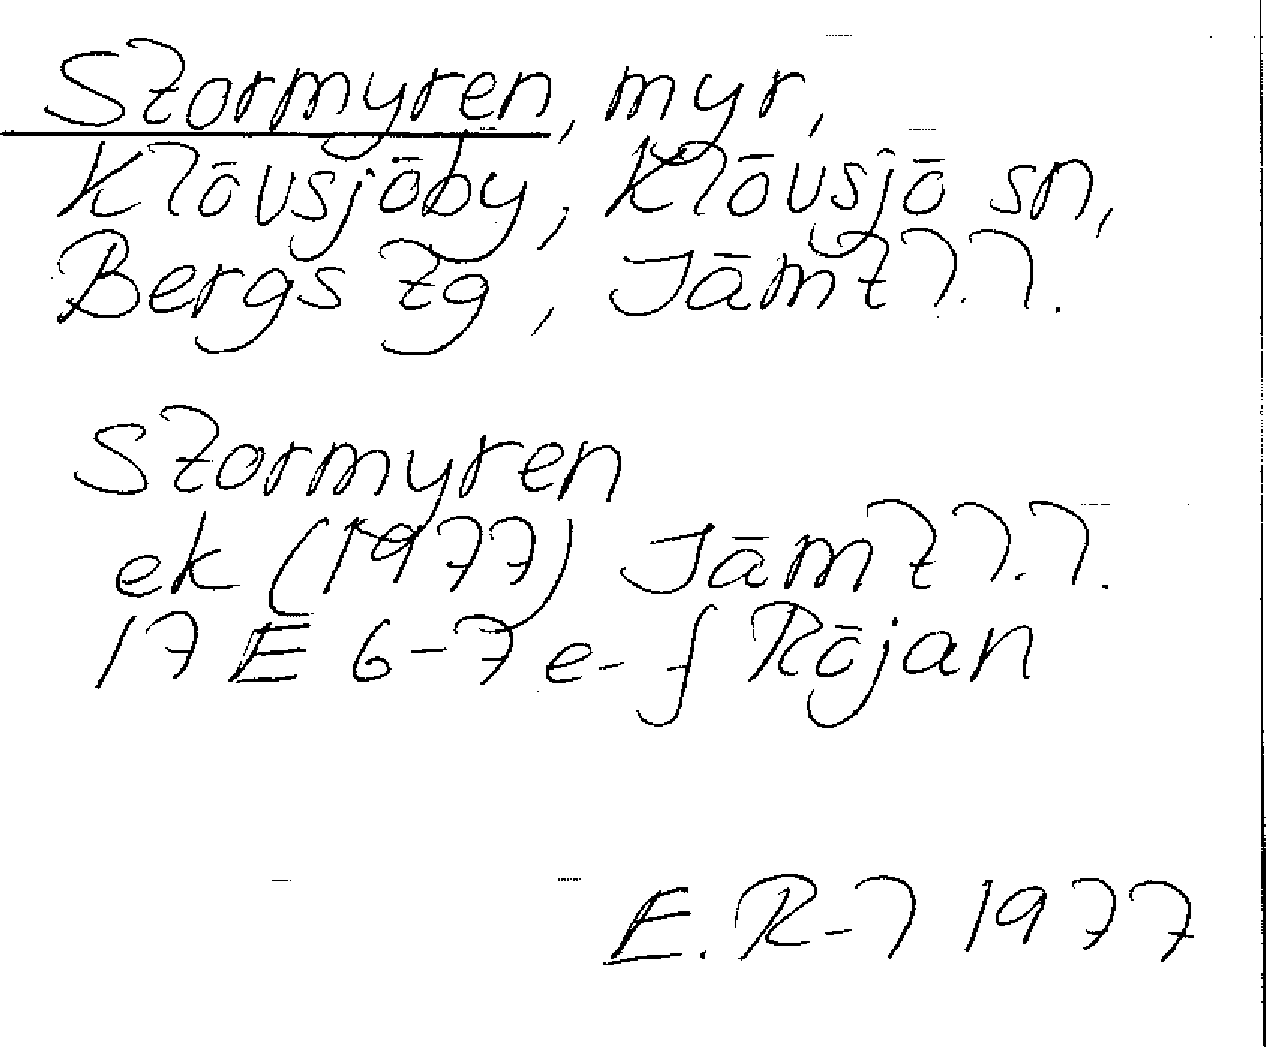 Stormyren, myr,
Klövsjöby, Klövsjö sn,
Bergs tg, Jämtl.l.
Stormyren
ek (1977) Jämtl.l.
17 E 6-7 e-f Röjan
E. R-l 1977